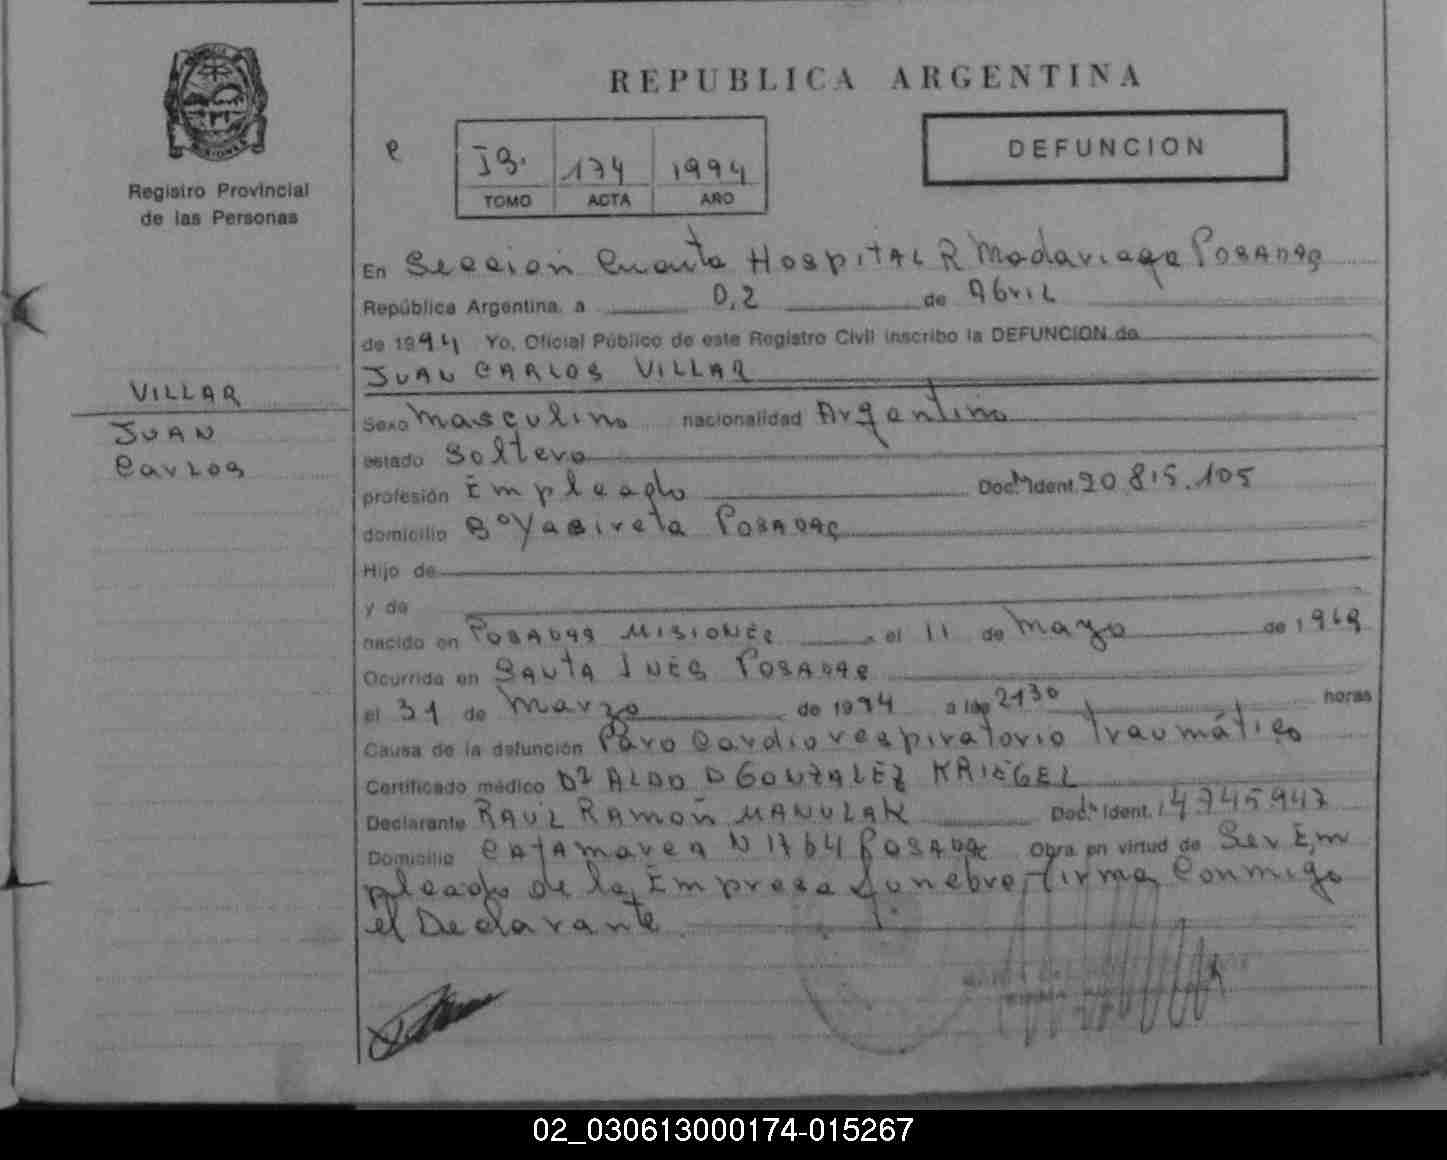 REPUBLICA ARGENTINA
Registro Provincial
de las Personas
TOMO ACTA AÑO
174 1994
DEFUNCION
En Seccion Cuarta Hospital R Madariaga Posadas
República Argentina, a 02 de Abril
de 1994 Yo, Oficial Público de este Registro Civil inscribo la DEFUNCION de
JUAN CARLOS VILLAR
VILLAR
JUAN
Carlos
Sexo Masculino nacionalidad Argentino
estado Soltero
profesión Empleado Doc. Ident. 20.815.105
domicilio B° Yasireta Posadas
Hijo de
y de
nacido en Posadas Misiones el 11 de Mayo de 1969
Ocurrida en Santa Inés Posadas
el 31 de Marzo de 1994 a las 2130 horas
Causa de la defunción Paro Cardiorespiratorio traumático
Certificado médico Dr ALDO D GONZALEZ KRIEGEL
Declarante RAUL RAMON MANULAK Doc. Ident. 14745947
Domicilio Catamarca N 1764 Posadas Obra en virtud de Ser Em
pleado de la Empresa funebre, firma Conmigo
el Declarante
02_030613000174-015267